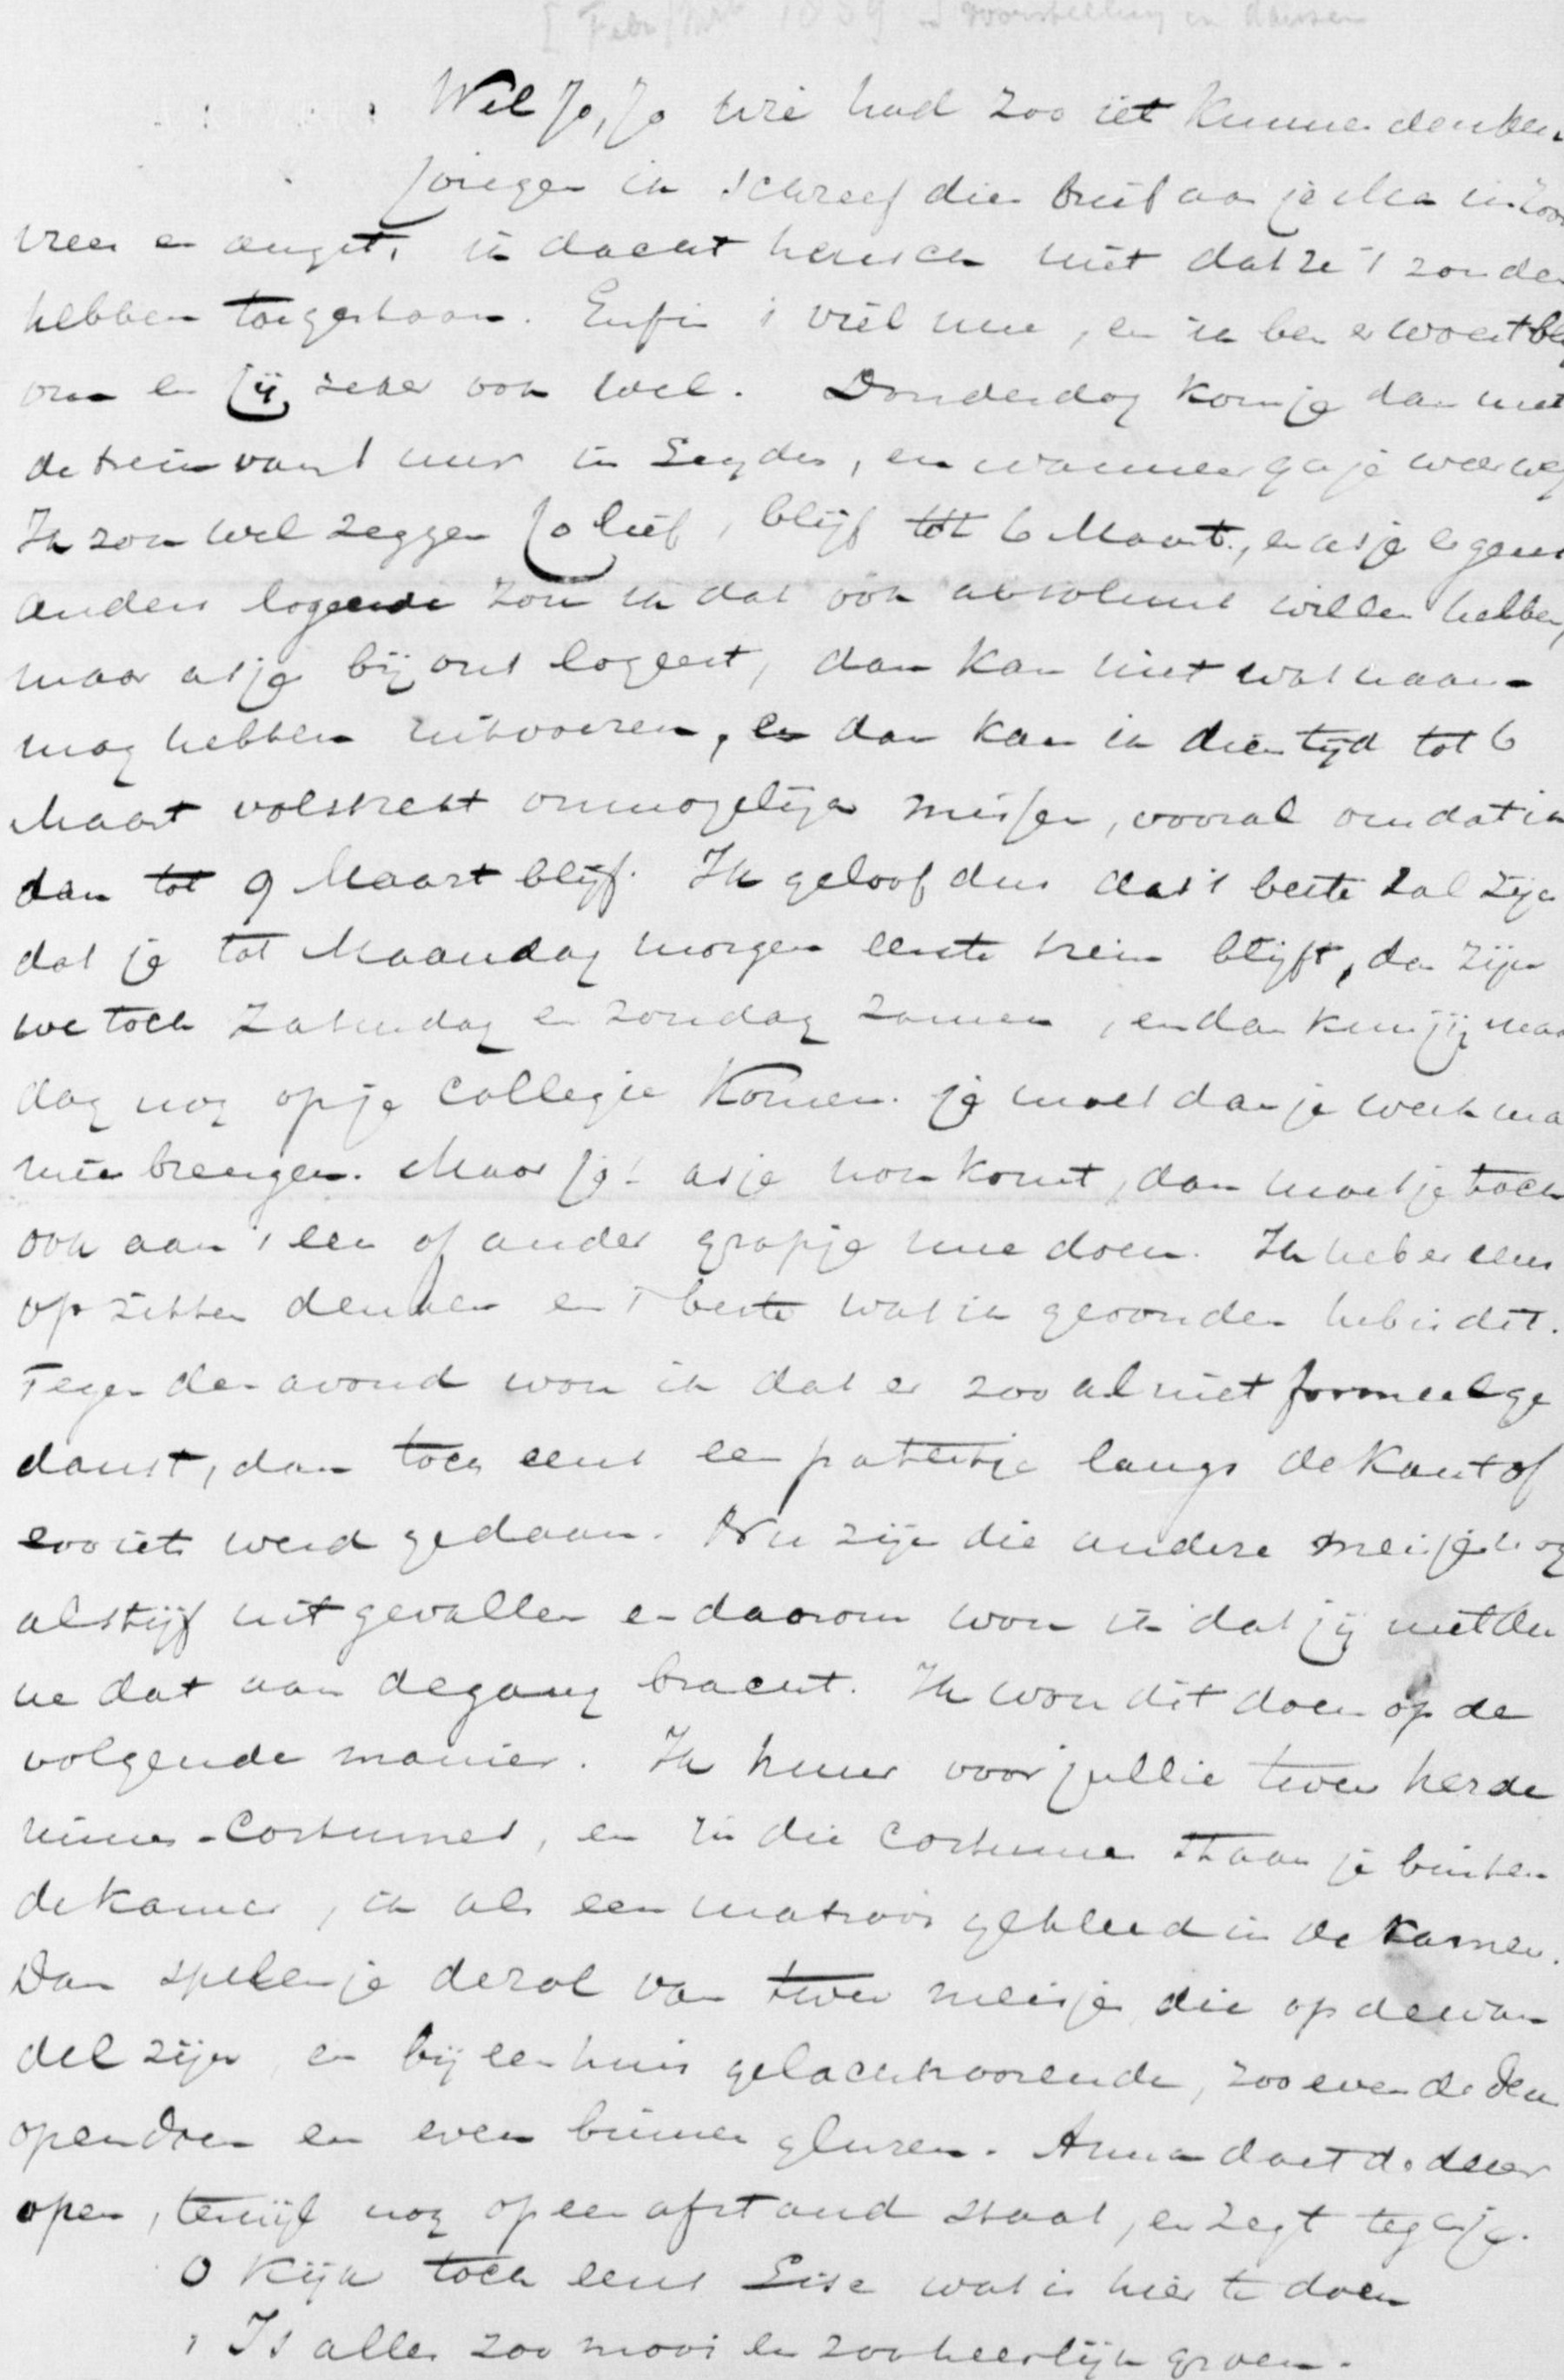 [Febr/Mrt 1889] voorstelling en dansen
Wel Jo, Jo wie had zoo iet kunnen denken.
Jongen ik schreef dien brief aan je Ma in zoo'n
vrees en angst, ik dacht heusch niet dat ze 't zouden
hebben toegestaan. Enfin 't viel mee, en ik ben er woest blij
om en jij zeker ook wel. Donderdag kom je dan met
de trein van 1 uur in Leyden, en wanneer ga je weer weg
Ik zou wel zeggen Jo lief, blijf tot 6 Maart, en as je ergens
anders logeerde zou ik dat ook absoluut willen hebben,
maar as je bij ons logeert, dan kan niet wat naam
mag hebben uitvoeren, en dan kan ik dien tijd tot 6
Maart volstrekt onmogelijk missen, vooral omdat ik
dan tot 9 Maart blijf. Ik geloof dus dat 't beste zal zijn
dat je tot Maandag morgen eerste trein blijft, dan zijn
we toch Zaturdag en Zondag samen, en dan kun jij maan
dag nog op je collegie komen. je moet dan je werk maar
mee brengen. Maar Jo! as je nou komt, dan moet je toch
ook aan 't een of ander grapje mee doen. Ik heb er eens
op zitten denken en 't beste wat ik gevonden heb is dit.
Tegen den avond wou ik dat er zoo al niet formeel ge
danst, dan toch eens een patertje langs de kant of
zoo iets werd gedaan. Nu zijn die andere meisjes nog
al stijf uitgevallen en daarom wou ik dat jij met An
na dat aan de gang bracht. Ik wou dit doen op de
volgende manier. Ik huur voor jullie twee herde
rinnen-costumes, en in die costumes staan je buiten
de kamer, ik als een matroos gekleed in de kamer.
Dan spelen je de rol van twee meisjes die op de wan
del zijn en bij een huis gelach hoorende, zoo even de deur
opendoen en even binnen gluren. Anna doet de deur
open, terwijl nog op een afstand staat, en zegt tegen je.
O kijk toch eens Lise wat is hier te doen
't Is alles zoo mooi en zoo heerlijk groen.